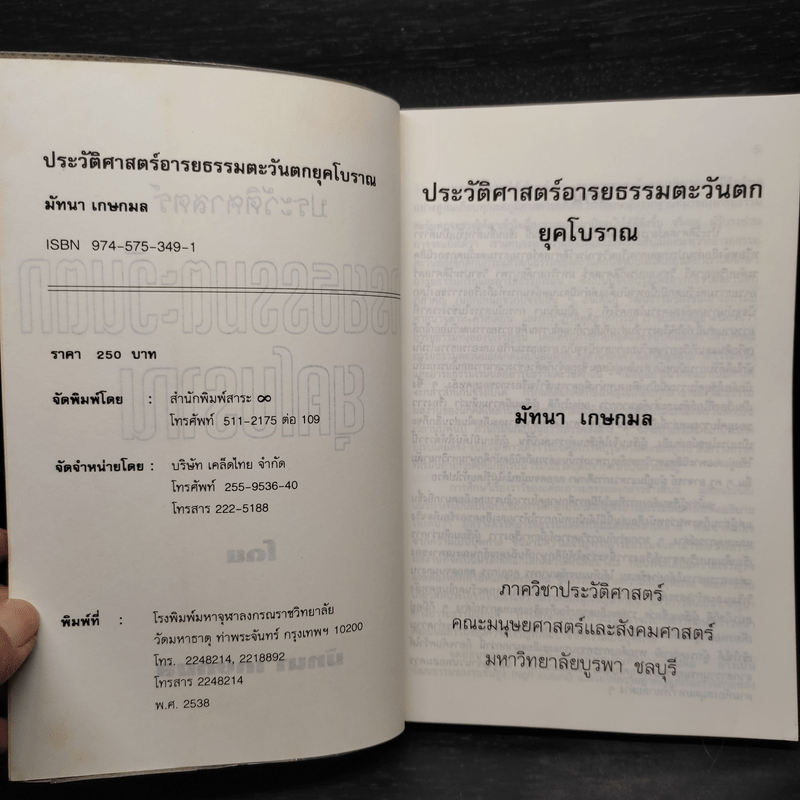 ประวัติศาสตร์อารยธรรมตะวันตกยุคโบราณ
มัทนา เกษกมล
ISBN 974-575-349-1
ราคา 250 บาท
จัดพิมพ์โดย : สำนักพิมพ์สาระ ∞
โทรศัพท์ 511-2175 ต่อ 109
จัดจำหน่ายโดย : บริษัท เคล็ดไทย จำกัด
โทรศัพท์ 255-9536-40
โทรสาร 222-5188
พิมพ์ที่ : โรงพิมพ์มหาจุฬาลงกรณราชวิทยาลัย
วัดมหาธาตุ ท่าพระจันทร์ กรุงเทพฯ 10200
โทร. 2248214, 2218892
โทรสาร 2248214
พ.ศ. 2538
ประวัติศาสตร์อารยธรรมตะวันตก
ยุคโบราณ
มัทนา เกษกมล
ภาควิชาประวัติศาสตร์
คณะมนุษยศาสตร์และสังคมศาสตร์
มหาวิทยาลัยบูรพา ชลบุรี